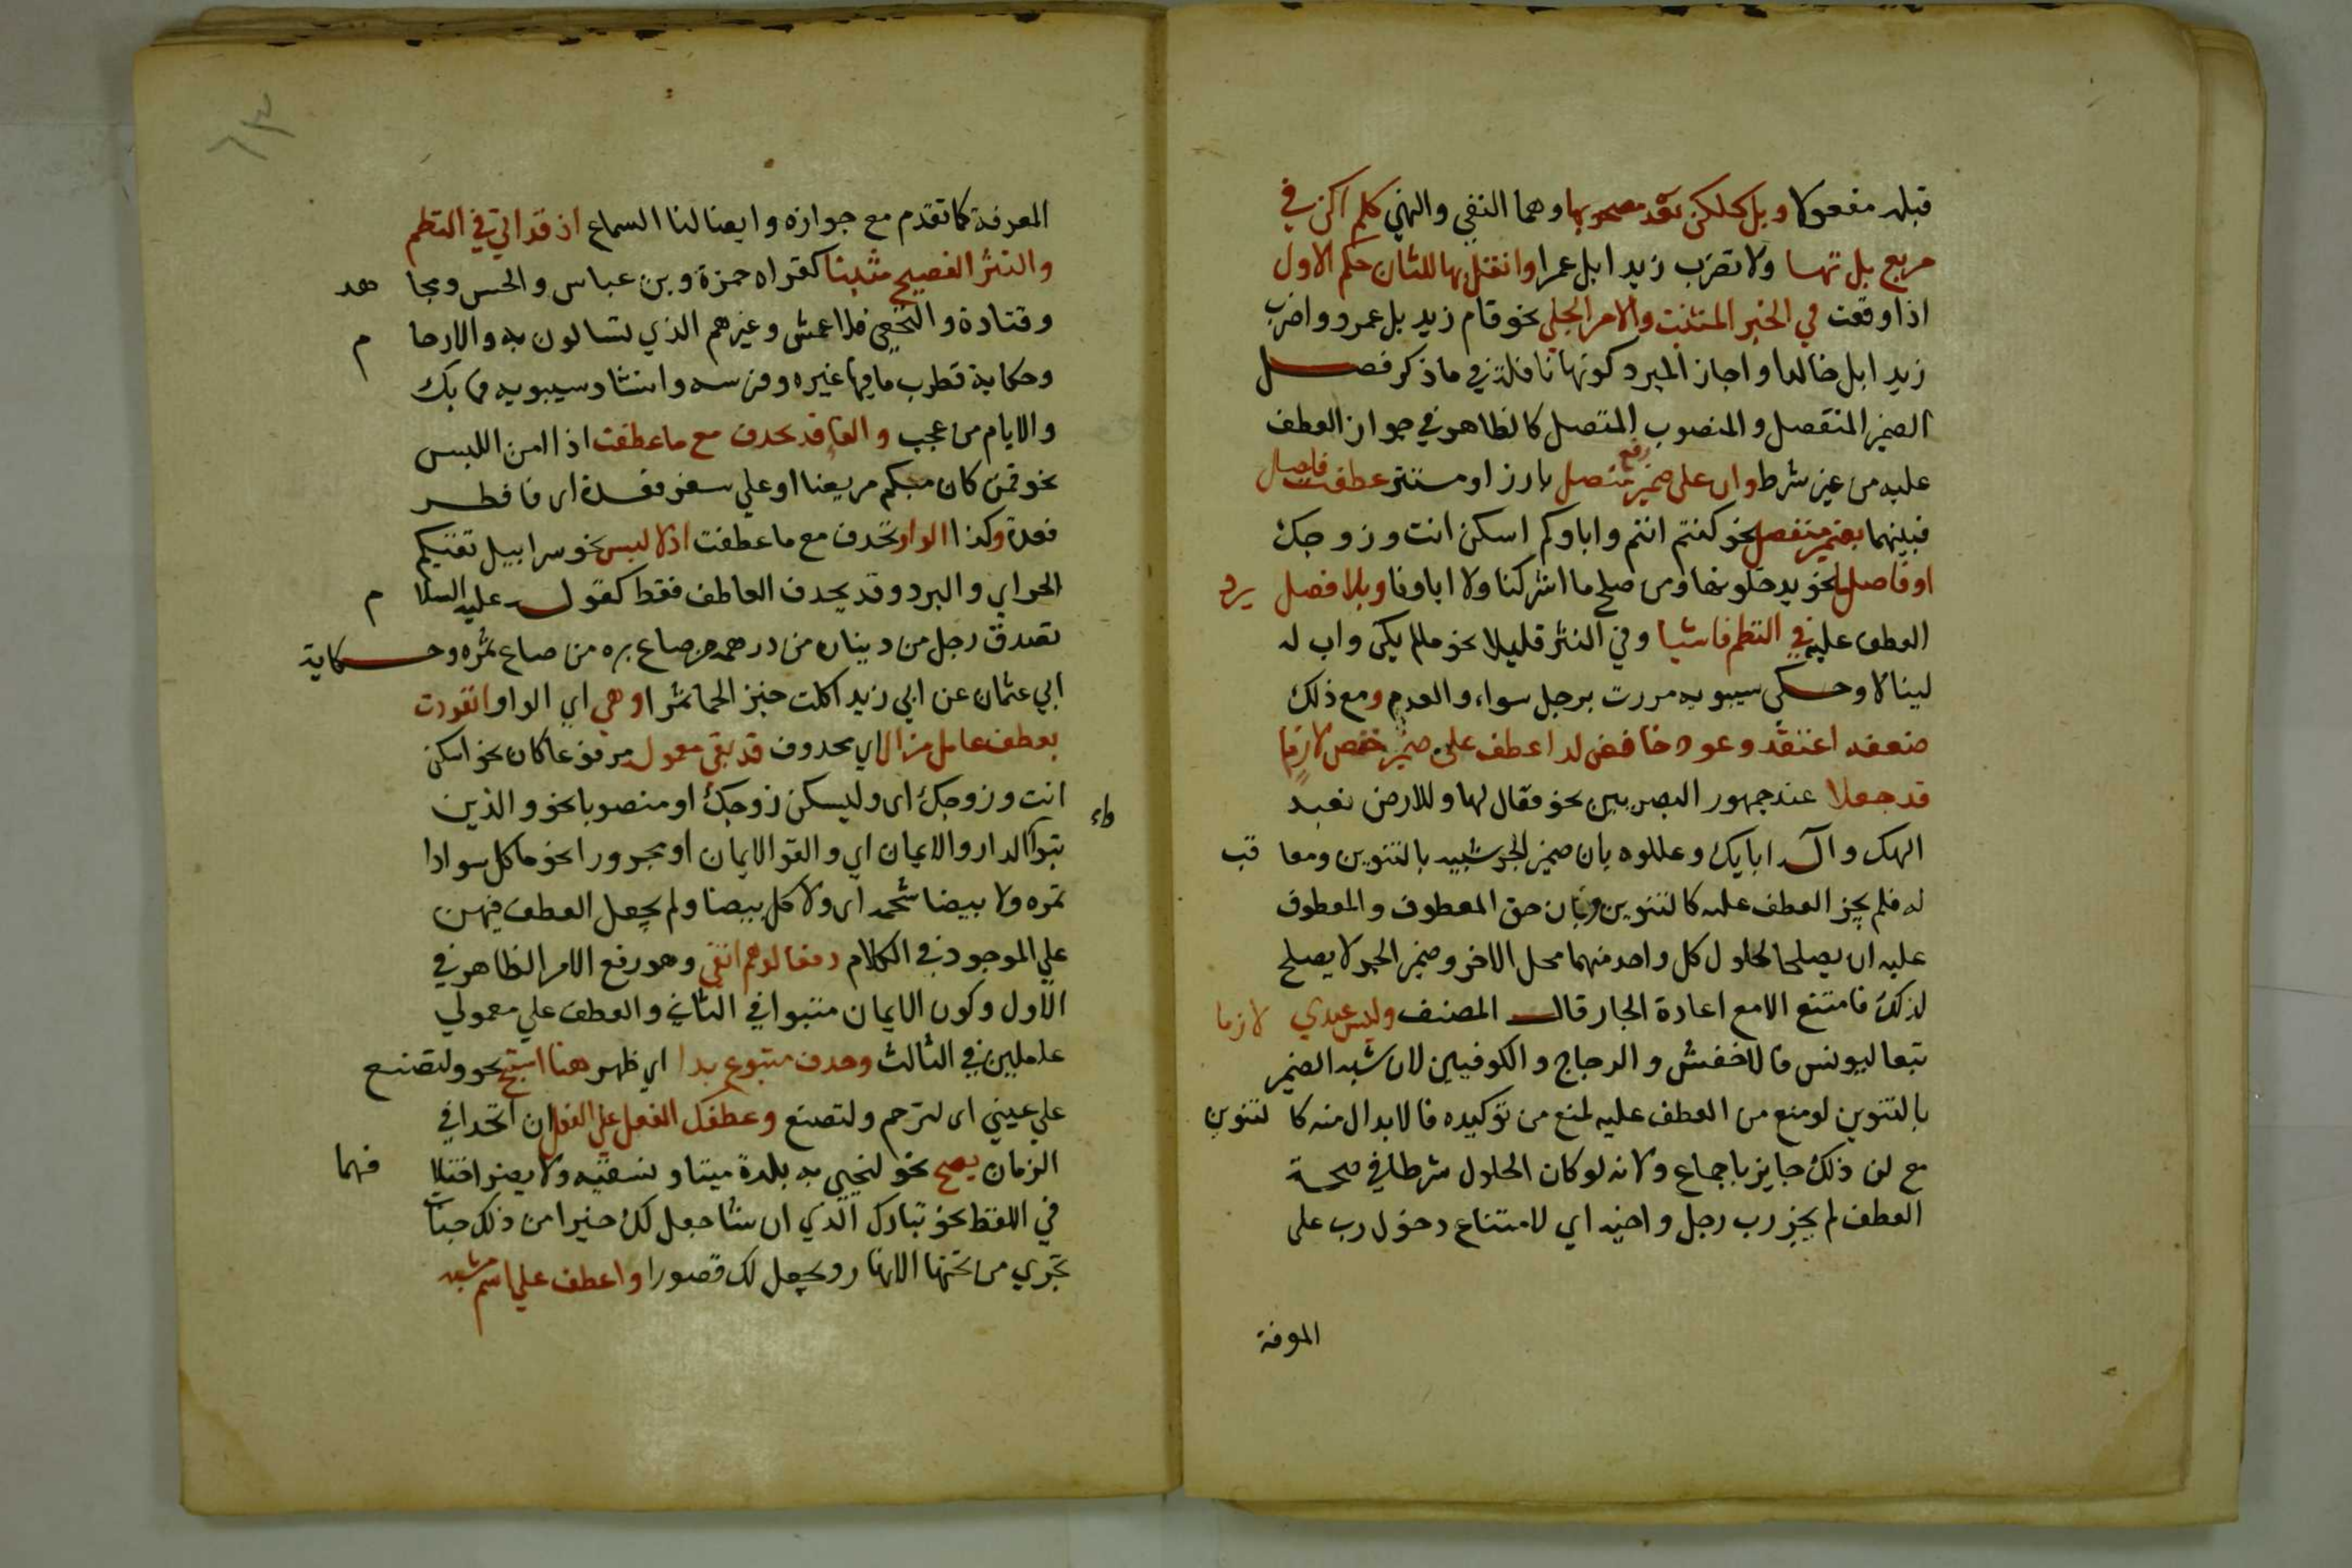 قبله مفعولا وبل كلكن بعد مصحوبيها وهما النفي والنهي كلم اكن في
مربع بل تيها ولا تضرب زيدا بل عمرا وانقل بها للثان حكم الاول
اذا وقعت في الخبر المثبت والامر الجلي نحو قام زيد بل عمرو واضرب
زيدا بل خالدا واجاز المبرد كونها ناقلة في ما ذكر فصل
الضمير المنفصل والمنصوب المتصل كالظاهر في جواز العطف
عليه من غير شرط وان على ضمير رفع متصل بارز او مستتر عطفت فافصل
فبينهما بضمير منفصل نحو كنتم انتم واباوكم اسكن انت وزوجك
او فاصل ما نحو يدخلونها ومن صلح ما اشركنا ولا اباونا وبلا فصل يرد
العطف عليه في النظم فاشيا وفي النثر قليلا نحو ما لم يكن واب له
لينالا وحكى سيبويه مررت برجل سواء والعدم ومع ذلك
ضعفه اعتقد وعود خافض لدا عطف على ضمير خفض لازما
قد جعلا عند جمهور البصريين نحو فقال لها وللارض نعبد
الهك واله ابايك وعللوه بان ضمير الجر شبيه بالتنوين ومعاقب
له فلم يجز العطف عليه كالتنوين وبان حق المعطوف والمعطوف
عليه ان يصلحا لحلول كل واحد منهما محل الاخر وضمير الجر لا يصلح
لذلك فامتنع الا مع اعادة الجار قال المصنف وليس عندي لازما
تبعا ليونس فالاخفش والزجاج والكوفيين لان شبه الضمير
بالتنوين لو منع من العطف عليه لمنع من توكيده فالابدال منه كالتنوين
مع ان ذلك جايز باجماع ولانه لو كان الحلول شرطا في صحة
العطف لم يجز رب رجل واخيه اي لامتناع دخول رب على
المعرفة
المعرفة كما تقدم مع جوازه وايضا لنا السماع اذ قد اتى في النظم
والنثر الفصيح مثبتا كقراه حمزة وبن عباس والحسن ومجاهد
وقتادة والنخعي فالاعمش وغيرهم الذي تسالون به والارحام
وحكاية قطرب ما فيها غيره وفرسه وانشاد سيبويه فما بك
والايام من عجب والفا قد تحذف مع ما عطفت اذا امن اللبس
نحو فمن كان منكم مريضا او على سفر فعدة اي فافطر
فعدة وكذا الواو تحذف مع ما عطفت اذ لا لبس نحو سرابيل تقيكم
الحر اي والبرد وقد يحذف العاطف فقط كقوله عليه السلام
تصدق رجل من ديناره من درهمه من صاع بره من صاع تمره وحكاية
ابي عثمان عن ابي زيد اكلت خبز الحما تمرا وهي اي الواو انفردت
بعطف عامل مزال اي محذوف قد بقي معموله مرفوعا كان نحو اسكن
انت وزوجك اي وليسكن زوجك او منصوبا نحو والذين
تبوا الدار والايمان اي والفوا الايمان او مجرورا نحو ما كل سوادا
تمره ولا بيضا شحمه اي ولا كل بيضا ولم يجعل العطف فيهن
على الموجود في الكلام دفعا لوهم اتقي وهو رفع الامر الظاهر في
الاول وكون الايمان متبوا في الثاني والعطف على معمولي
عاملين في الثالث وحذف متبوع بدا اي ظهر هنا استبح نحو ولتصنع
على عيني اي لترحم ولتصنع وعطفك الفعل على الفعل ان اتحدا في
الزمان يصح نحو لنحيي به بلدة ميتا ونسقيه ولا يضر اختلافهما
في اللفظ نحو تبارك الذي ان شا جعل لك خيرا من ذلك جنات
تجري من تحتها الانهار ويجعل لك قصورا واعطف على اسم شبه